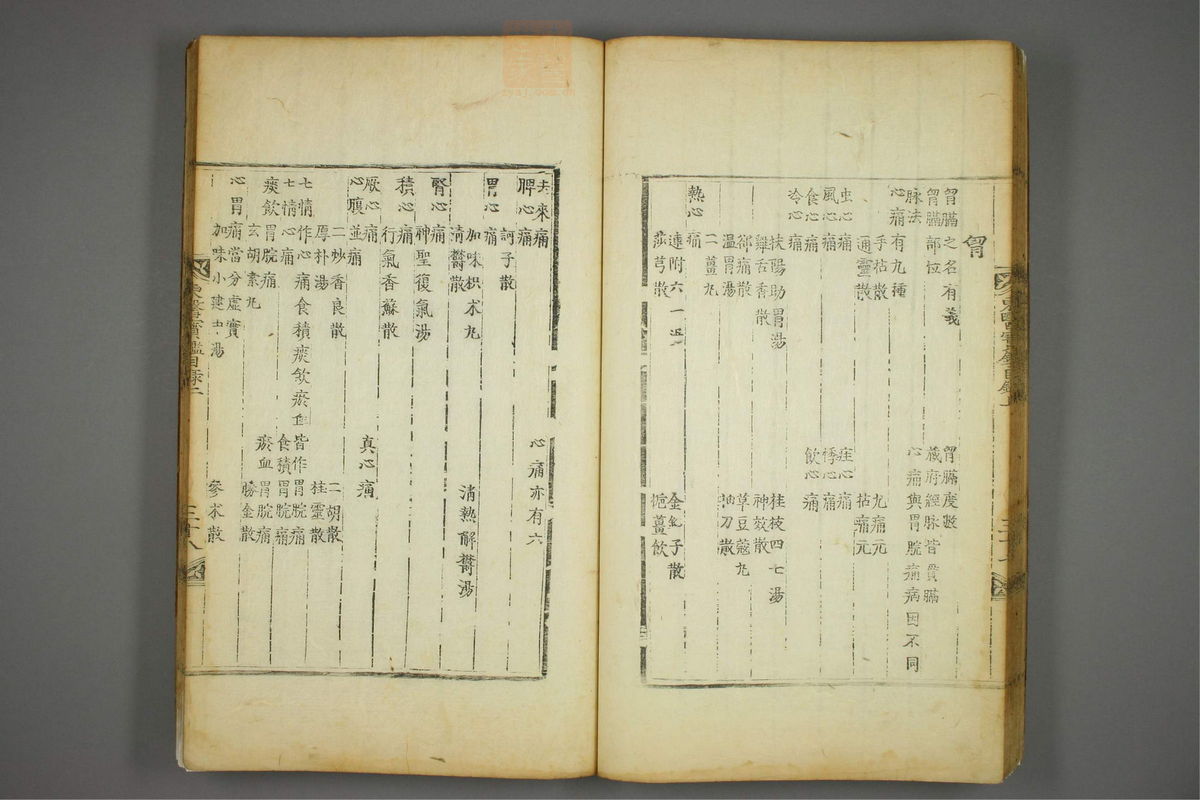 胷
胷膈之名有義
胷膈度數
胷膈部位
藏府經脉皆貫膈
脉法
心痛與胃脘痛病因不同
心痛有九種
九痛元
手枯散
拈痛元
通靈散
虫心痛
疰心痛
風心痛
悸心痛
食心痛
飮心痛
冷心痛
扶陽助胃湯
桂枝四七湯
雞舌香散
神效散
却痛散
草豆蔲丸
溫胃湯
抽刀散
二薑丸
熱心痛
連附六一湯
金鈴子散
莎芎散
梔薑飮
去來痛
心痛亦有六
脾心痛
訶子散
胃心痛
加味枳朮丸
淸熱解鬱湯
淸鬱散
腎心痛
神聖復氣湯
積心痛
行氣香蘇散
厥心痛
眞心痛
心腹並痛
二妙香良散
二胡散
厚朴湯
桂靈散
七情作心痛食積痰飮瘀血皆作胃脘痛
七情心痛
食積胃脘痛
痰飮胃脘痛
瘀血胃脘痛
玄胡索丸
勝金散
心胃痛當分虛實
加味小建中湯
參朮散
三十八